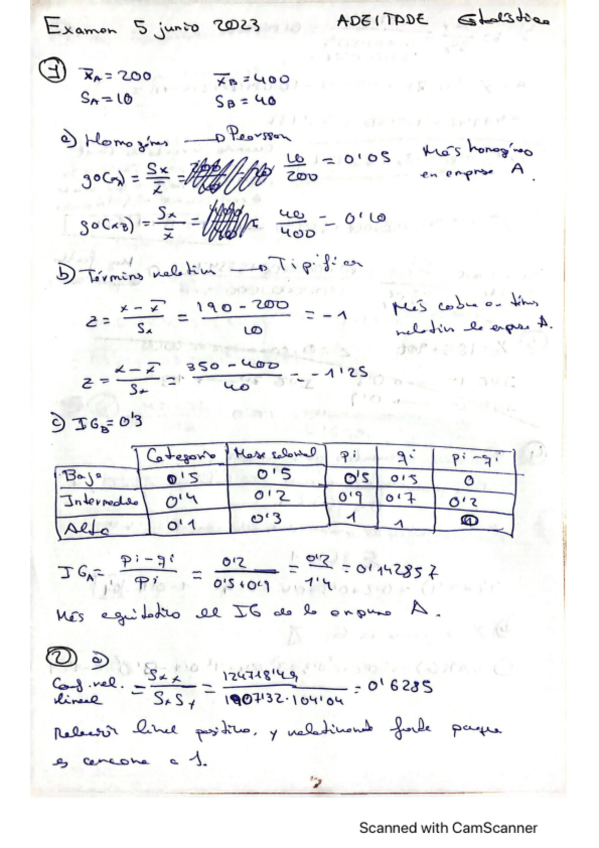 Examen 5 junio 2023 ADEITADE Estadística
1 x̄A = 200 x̄B = 400
SA = 10 SB = 40
a) Homogéneo → Pearsson
g0(xA) = Sx/x̄ = 10/200 = 0'05 Más homogéneo en empresa A.
g0(xB) = Sx/x̄ = 40/400 = 0'10
b) Términos relativos → Tipificar
z = x - x̄/Sx = 190 - 200/10 = -1 Más cobra en térm relativo la empresa A.
z = x - x̄/Sx = 350 - 400/40 = -1'25
c) IGB = 0'3
Categoria Masa salarial pi qi pi-qi
Baja 0'5 0'5 0'5 0'5 0
Intermedia 0'4 0'2 0'9 0'7 0'2
Alta 0'1 0'3 1 1
IGA = pi - qi/pi = 0'2/0'5+0'9 = 0'2/1'4 = 0'142857
Más equitativo el IG de la empresa A.
2 a)
Coef. rel. lineal = Sxy/SxSy = 124718'49/1907'32·104'04 = 0'6285
Relación lineal positiva, y relativamente fuerte porque
es cercano a 1.
Scanned with CamScanner